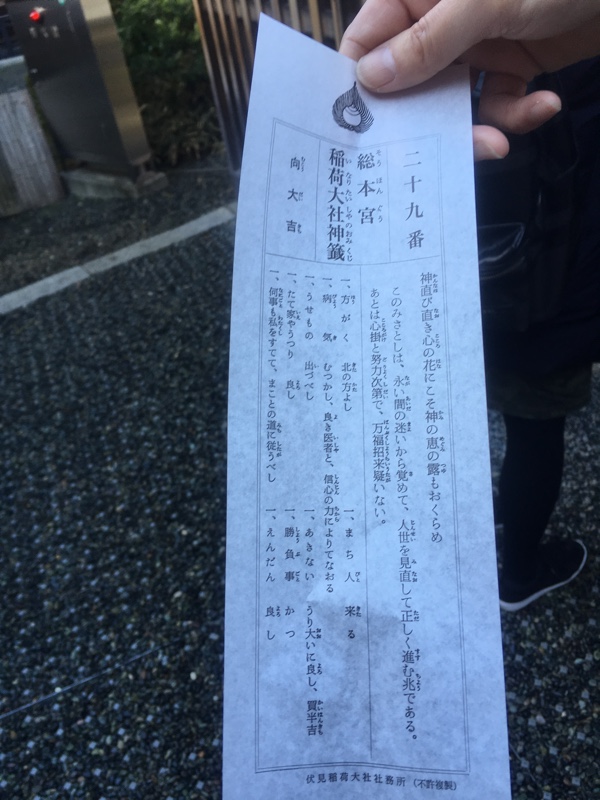 二十九番
総本宮
稲荷大社神籤
向大吉
神直び直き心の花にこそ神の恵の露もおくらめ
このみさとしは、永い間の迷いから覚めて、人世を見直して正しく進む兆である。
あとは心掛と努力次第で、万福招来疑いない。
一、方がく 北の方よし
一、まち人 来る
一、病気 むつかし、良き医者と、信心の力によりてなおる
一、うせもの 出づべし
一、あきない うり大いに良し、買半吉
一、たて家やうつり 良し
一、勝負事 かつ
一、何事も私をすてて、まことの道に従うべし
一、えんだん 良し
伏見稲荷大社社務所 (不許複製)